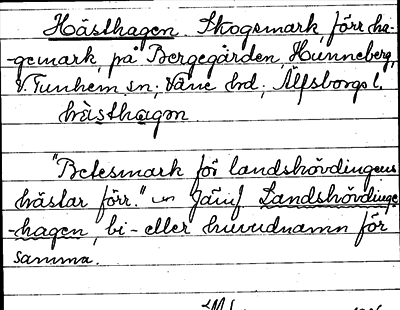 Hästhagen. Skogsmark, förr ha-
-gemark, på Bergegården, Hunneberg,
V. Tunhem sn; Väne hd; Älfsborgs l.
hàsthagən
"Betesmark för landshövdingens
hästar förr." Jämf. Landshövdinge-
-hagen, bi- eller huvudnamn för
samma.